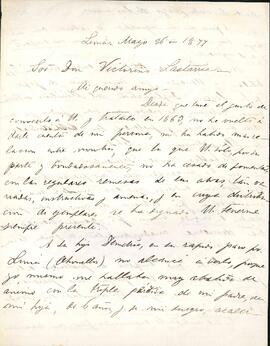 Lima, Mayo 26 - 1877
Sor Don Victorino Lastarria
Mi querido amigo
Desde que tuve el gusto de
conocerlo a U. y tratarlo en 1863, no he vuelto a
darle cuenta de mi persona, ni ha habido mas re-
lacion entre nosotros, que la que U. solo por su
parte y bondadosamente, no ha cesado de fomentar
con las regulares remesas de sus obras, tan va-
riadas, instructivas y amenas, y en cuya distribu-
cion de ejemplares, se ha dignado U. tenerme
siempre presente.
A su hijo Demetrio, en su rapido paso por
Lima, no alcancé a verlo, porque
yo mismo me hallaba muy abatido de
animo con la triple pérdida de mi padre, de
mi hija, de 6 años y de mi suegro, acaeci